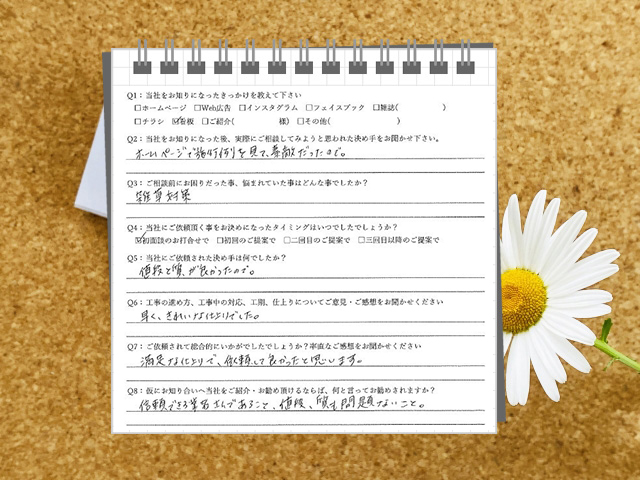 Q1：当社をお知りになったきっかけを教えて下さい
□ホームページ □Web広告 □インスタグラム □フェイスブック □雑誌( )
□チラシ ☑看板 □ご紹介( 様) □その他( )
Q2：当社をお知りになった後、実際にご相談してみようと思われた決め手をお聞かせ下さい。
ホームページで施工事例を見て、素敵だったので。
Q3：ご相談前にお困りだった事、悩まれていた事はどんな事でしたか？
雑草対策
Q4：当社にご依頼頂く事をお決めになったタイミングはいつでしたでしょうか？
☑初面談のお打合せで □初回のご提案で □二回目のご提案で □三回目以降のご提案で
Q5：当社にご依頼された決め手は何でしたか？
値段と質が良かったので。
Q6：工事の進め方、工事中の対応、工期、仕上りについてご意見・ご感想をお聞かせください
早く、きれいな仕上りでした。
Q7：ご依頼されて総合的にいかがでしたでしょうか？率直なご感想をお聞かせください
満足な仕上りで、依頼して良かったと思います。
Q8：仮にお知り合いへ当社をご紹介・お勧め頂けるならば、何と言ってお勧めされますか？
信頼できる業者さんであること、値段、質も問題ないこと。